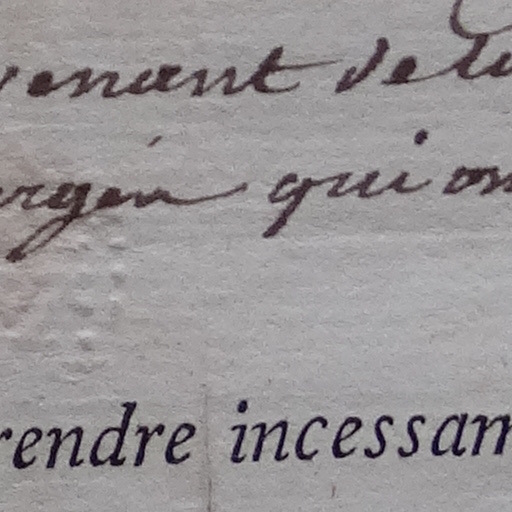 venant de lu
urgén qui on
rendre incessam